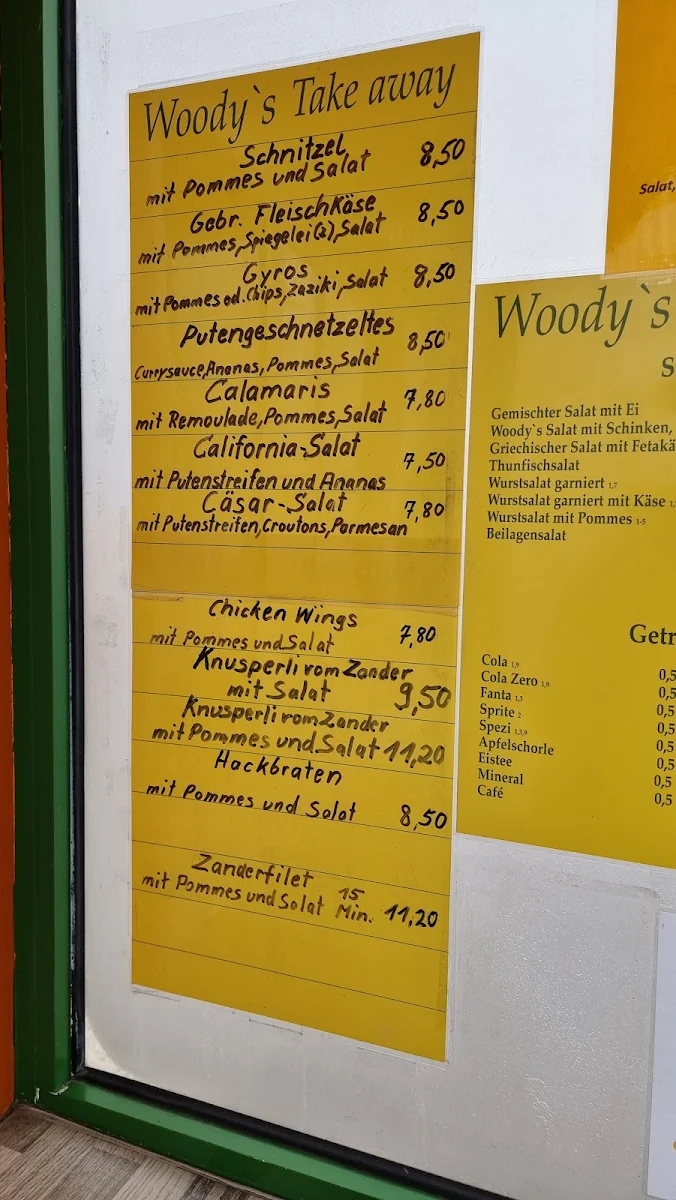 Woody`s Take away
Schnitzel
mit Pommes und Salat 8,50
Gebr. Fleischkäse
mit Pommes, Spiegelei(a), Salat 8,50
Gyros
mit Pommes od. Chips, Zaziki, Salat 8,50
Putengeschnetzeltes
Currysauce, Ananas, Pommes, Salat 8,50
Calamaris
mit Remoulade, Pommes, Salat 7,80
California-Salat
mit Putenstreifen und Ananas 7,50
Cäsar-Salat
mit Putenstreifen, Croutons, Parmesan 7,80
Chicken Wings
mit Pommes und Salat 7,80
Knusperli vom Zander
mit Salat 9,50
Knusperli vom Zander
mit Pommes und Salat 11,20
Hackbraten
mit Pommes und Salat 8,50
Zanderfilet
mit Pommes und Salat 15 Min. 11,20
Salat,
Woody`s
Gemischter Salat mit Ei
Woody`s Salat mit Schinken,
Griechischer Salat mit Fetakä
Thunfischsalat
Wurstsalat garniert 1,7
Wurstsalat garniert mit Käse
Wurstsalat mit Pommes 1-5
Beilagensalat
Getr
Cola 1,9 0,5
Cola Zero 1,9 0,5
Fanta 1,3 0,5
Sprite 2 0,5
Spezi 1,3,9 0,5
Apfelschorle 0,5
Eistee 0,5
Mineral 0,5
Café